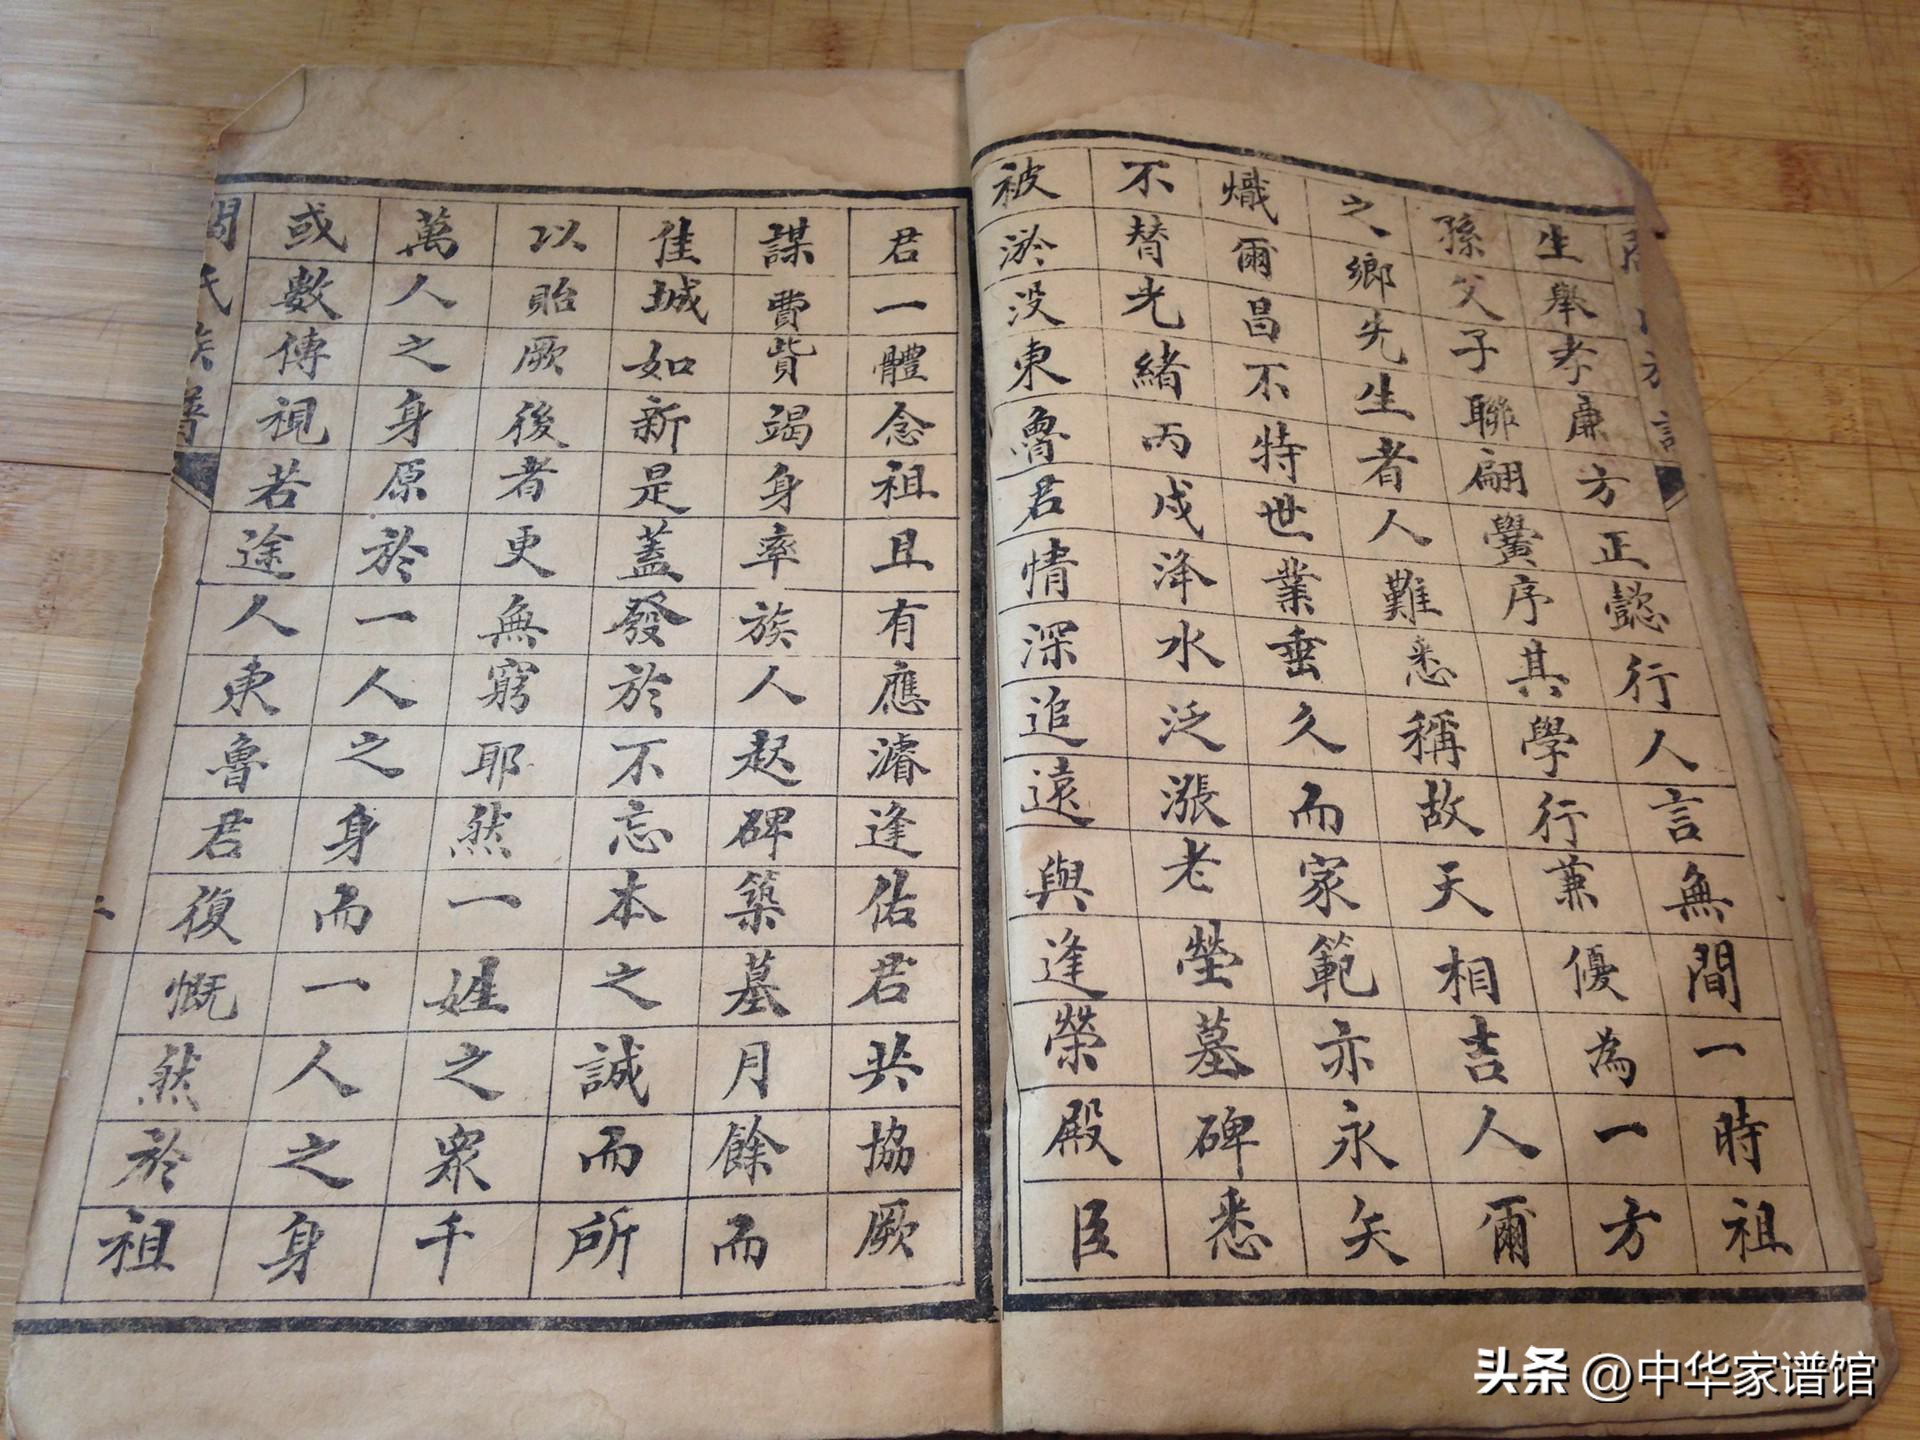 生舉孝廉方正懿行人言無間一時祖
孫父子聯翩黌序其學行兼優為一方
之鄉先生者人難悉稱故天相吉人爾
熾爾昌不特世業垂久而家範亦永矢
不替光緒丙戌洚水泛漲老塋墓碑悉
被淤没東魯君情深追遠與逢榮殿臣
君一體念祖且有應濬逢佑君共協厥
謀費貲竭身率族人起碑築墓月餘而
佳城如新是蓋發於不忘本之誠而所
以貽厥後者更無窮耶然一姓之衆千
萬人之身原於一人之身而一人之身
或數傳視若途人東魯君復慨然於祖
氏族譜
头条 @中华家谱馆